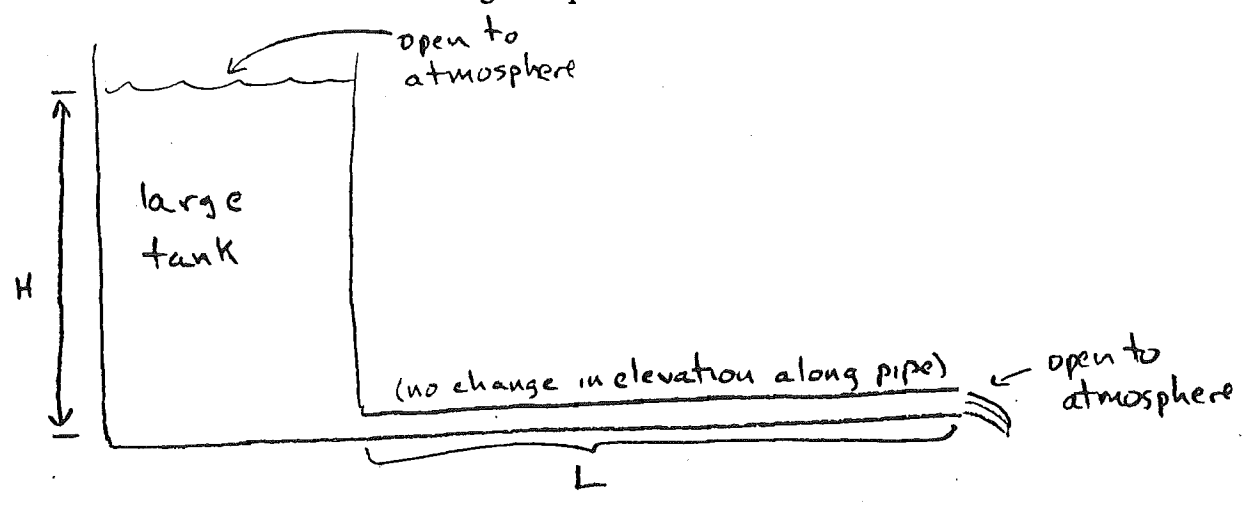 open to
atmosphere
large
tank
H
(no change in elevation along pipe)
open to
atmosphere
L